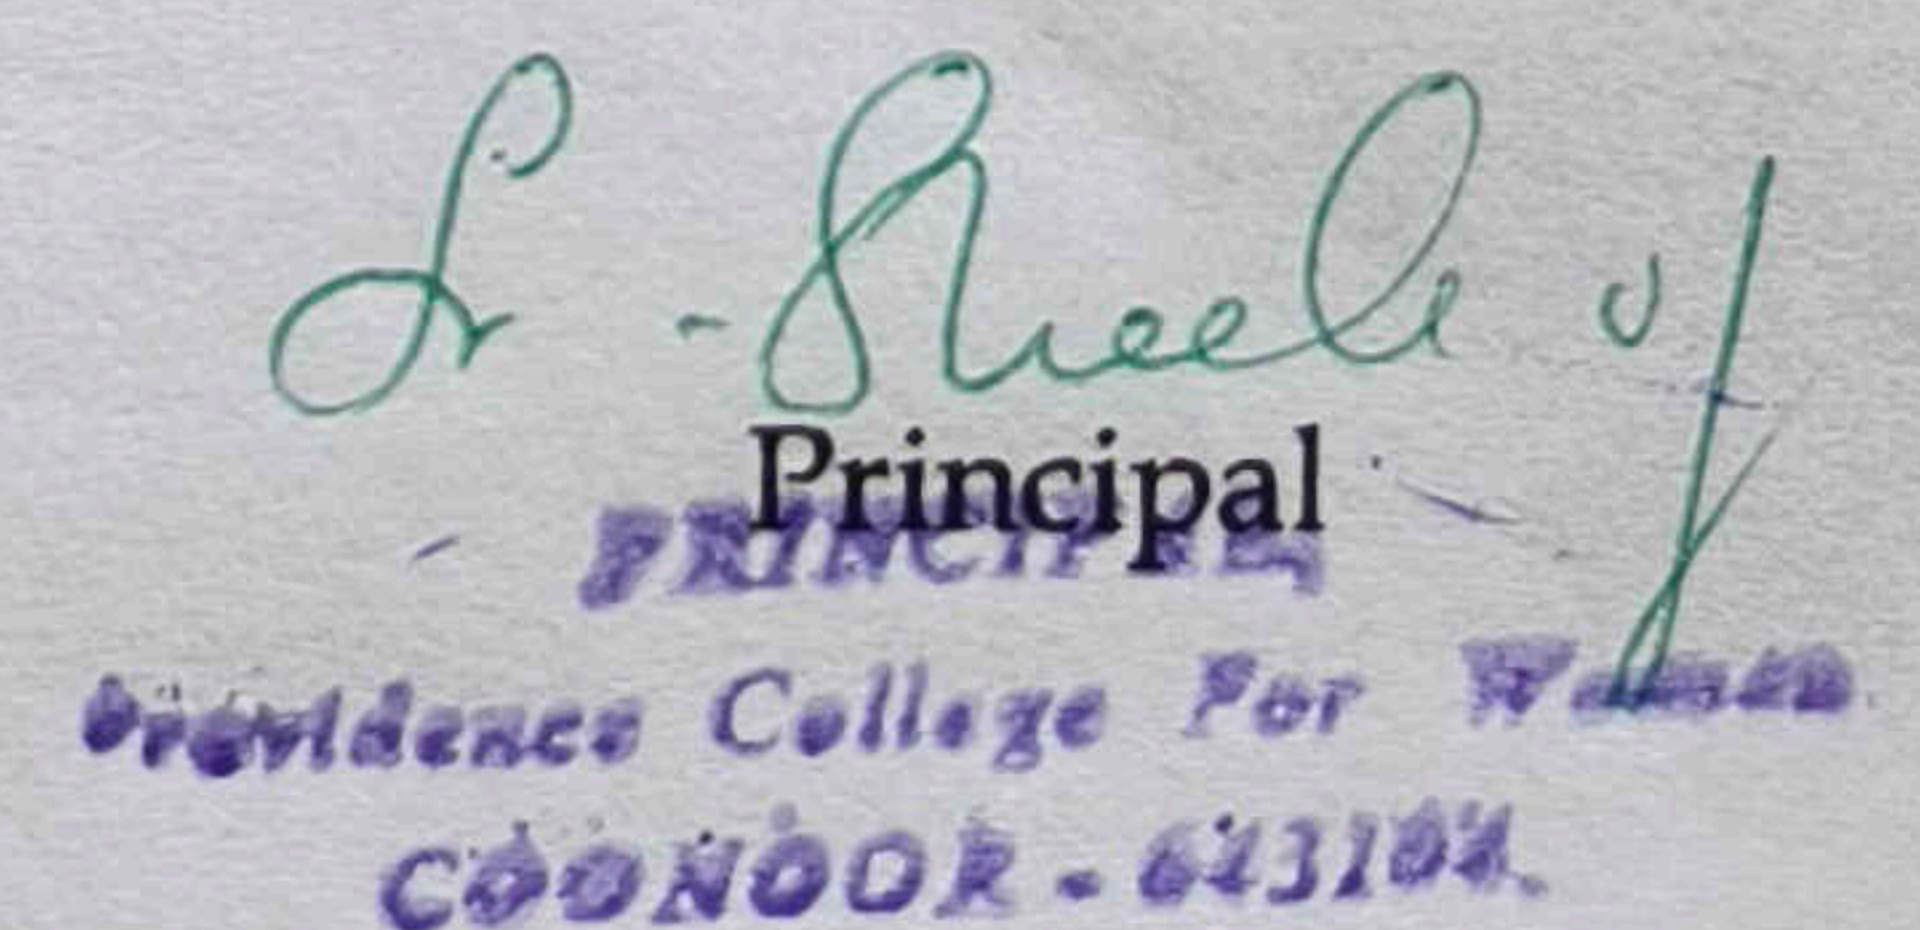 Sr. Sheela VJ
Principal
PRINCIPAL
Providence College For Women
COONOOR - 643104.